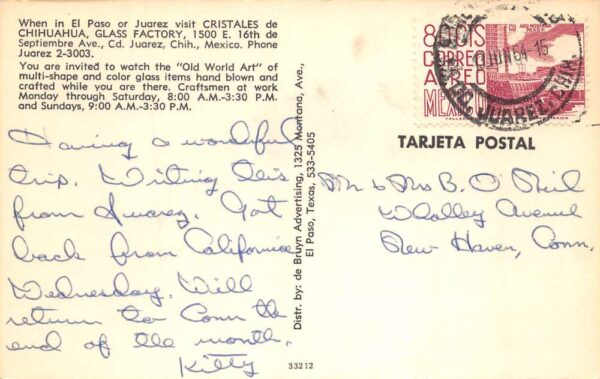 When in El Paso or Juarez visit CRISTALES de
CHIHUAHUA, GLASS FACTORY, 1500 E. 16th de
Septiembre Ave., Cd. Juarez, Chih., Mexico. Phone
Juarez 2-3003.
You are invited to watch the "Old World Art" of
multi-shape and color glass items hand blown and
crafted while you are there. Craftsmen at work
Monday through Saturday, 8:00 A.M.-3:30 P.M.
and Sundays, 9:00 A.M.-3:30 P.M.
Having a wonderful
trip. Writing this
from Juarez. Got
back from California
Wednesday. Will
return to Conn the
end of the month.
Kitty
Distr. by: de Bruyn Advertising, 1325 Montana, Ave.,
El Paso, Texas, 533-5405
33212
80CTS
CORREO
AEREO
MEXICO
JUN 64-15
JUAREZ, CHIH.
TARJETA POSTAL
Mr & Mrs B. O'Neil
Whalley Avenue
New Haven, Conn.